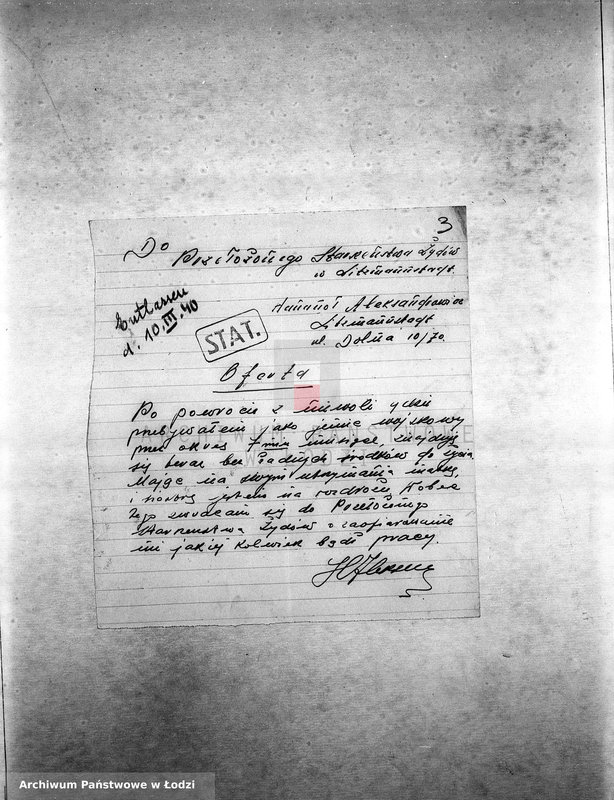 3
Do Przełożonego Starszeństwa Żydów
w Litzmannstadt
Entlassen
d. 10.III.40
STAT.
Aleksandrowicz
Litzmannstadt
ul. Dolna 10/70.
Oferta
Po powrocie z niewoli gdzie
przebywałem jako jeniec wojskowy
przez okres miesięcy, znajduję
się teraz bez żadnych środków do życia
Mając na swoim utrzymaniu matkę
i siostrę jestem na rozdrożu Wobec
tego zwracam się do Przełożonego
Starszeństwa Żydów o zaofiarowanie
mi jakiej kolwiek bądź pracy.
Archiwum Państwowe w Łodzi